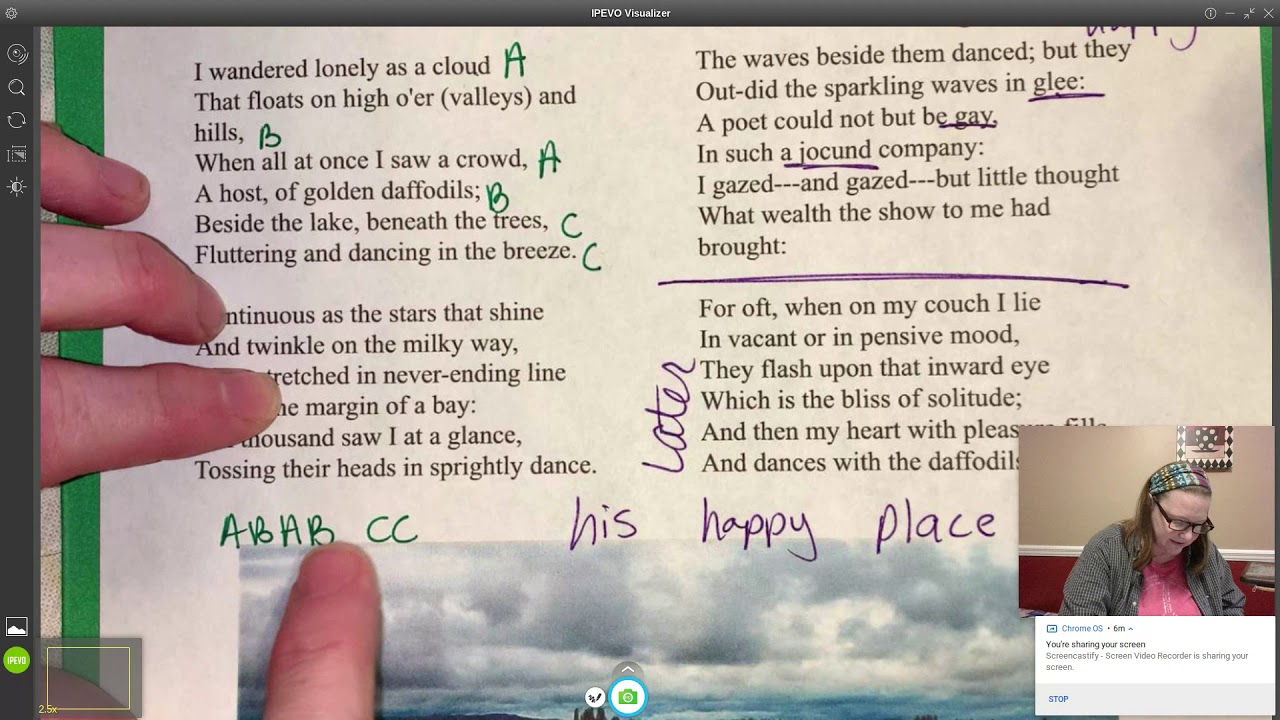 IPEVO Visualizer
happy
I wandered lonely as a cloud A
That floats on high o'er (valleys) and
hills, B
When all at once I saw a crowd, A
A host, of golden daffodils; B
Beside the lake, beneath the trees, C
Fluttering and dancing in the breeze. C
ntinuous as the stars that shine
And twinkle on the milky way,
retched in never-ending line
he margin of a bay:
thousand saw I at a glance,
Tossing their heads in sprightly dance.
ABAB CC
The waves beside them danced; but they
Out-did the sparkling waves in glee:
A poet could not but be gay,
In such a jocund company:
I gazed---and gazed---but little thought
What wealth the show to me had
brought:
For oft, when on my couch I lie
In vacant or in pensive mood,
They flash upon that inward eye
Which is the bliss of solitude;
And then my heart with pleasure fills
And dances with the daffodils
Later
his happy place
Chrome OS • 6m
You're sharing your screen
Screencastify - Screen Video Recorder is sharing your
screen.
STOP
IPEVO
2.5x